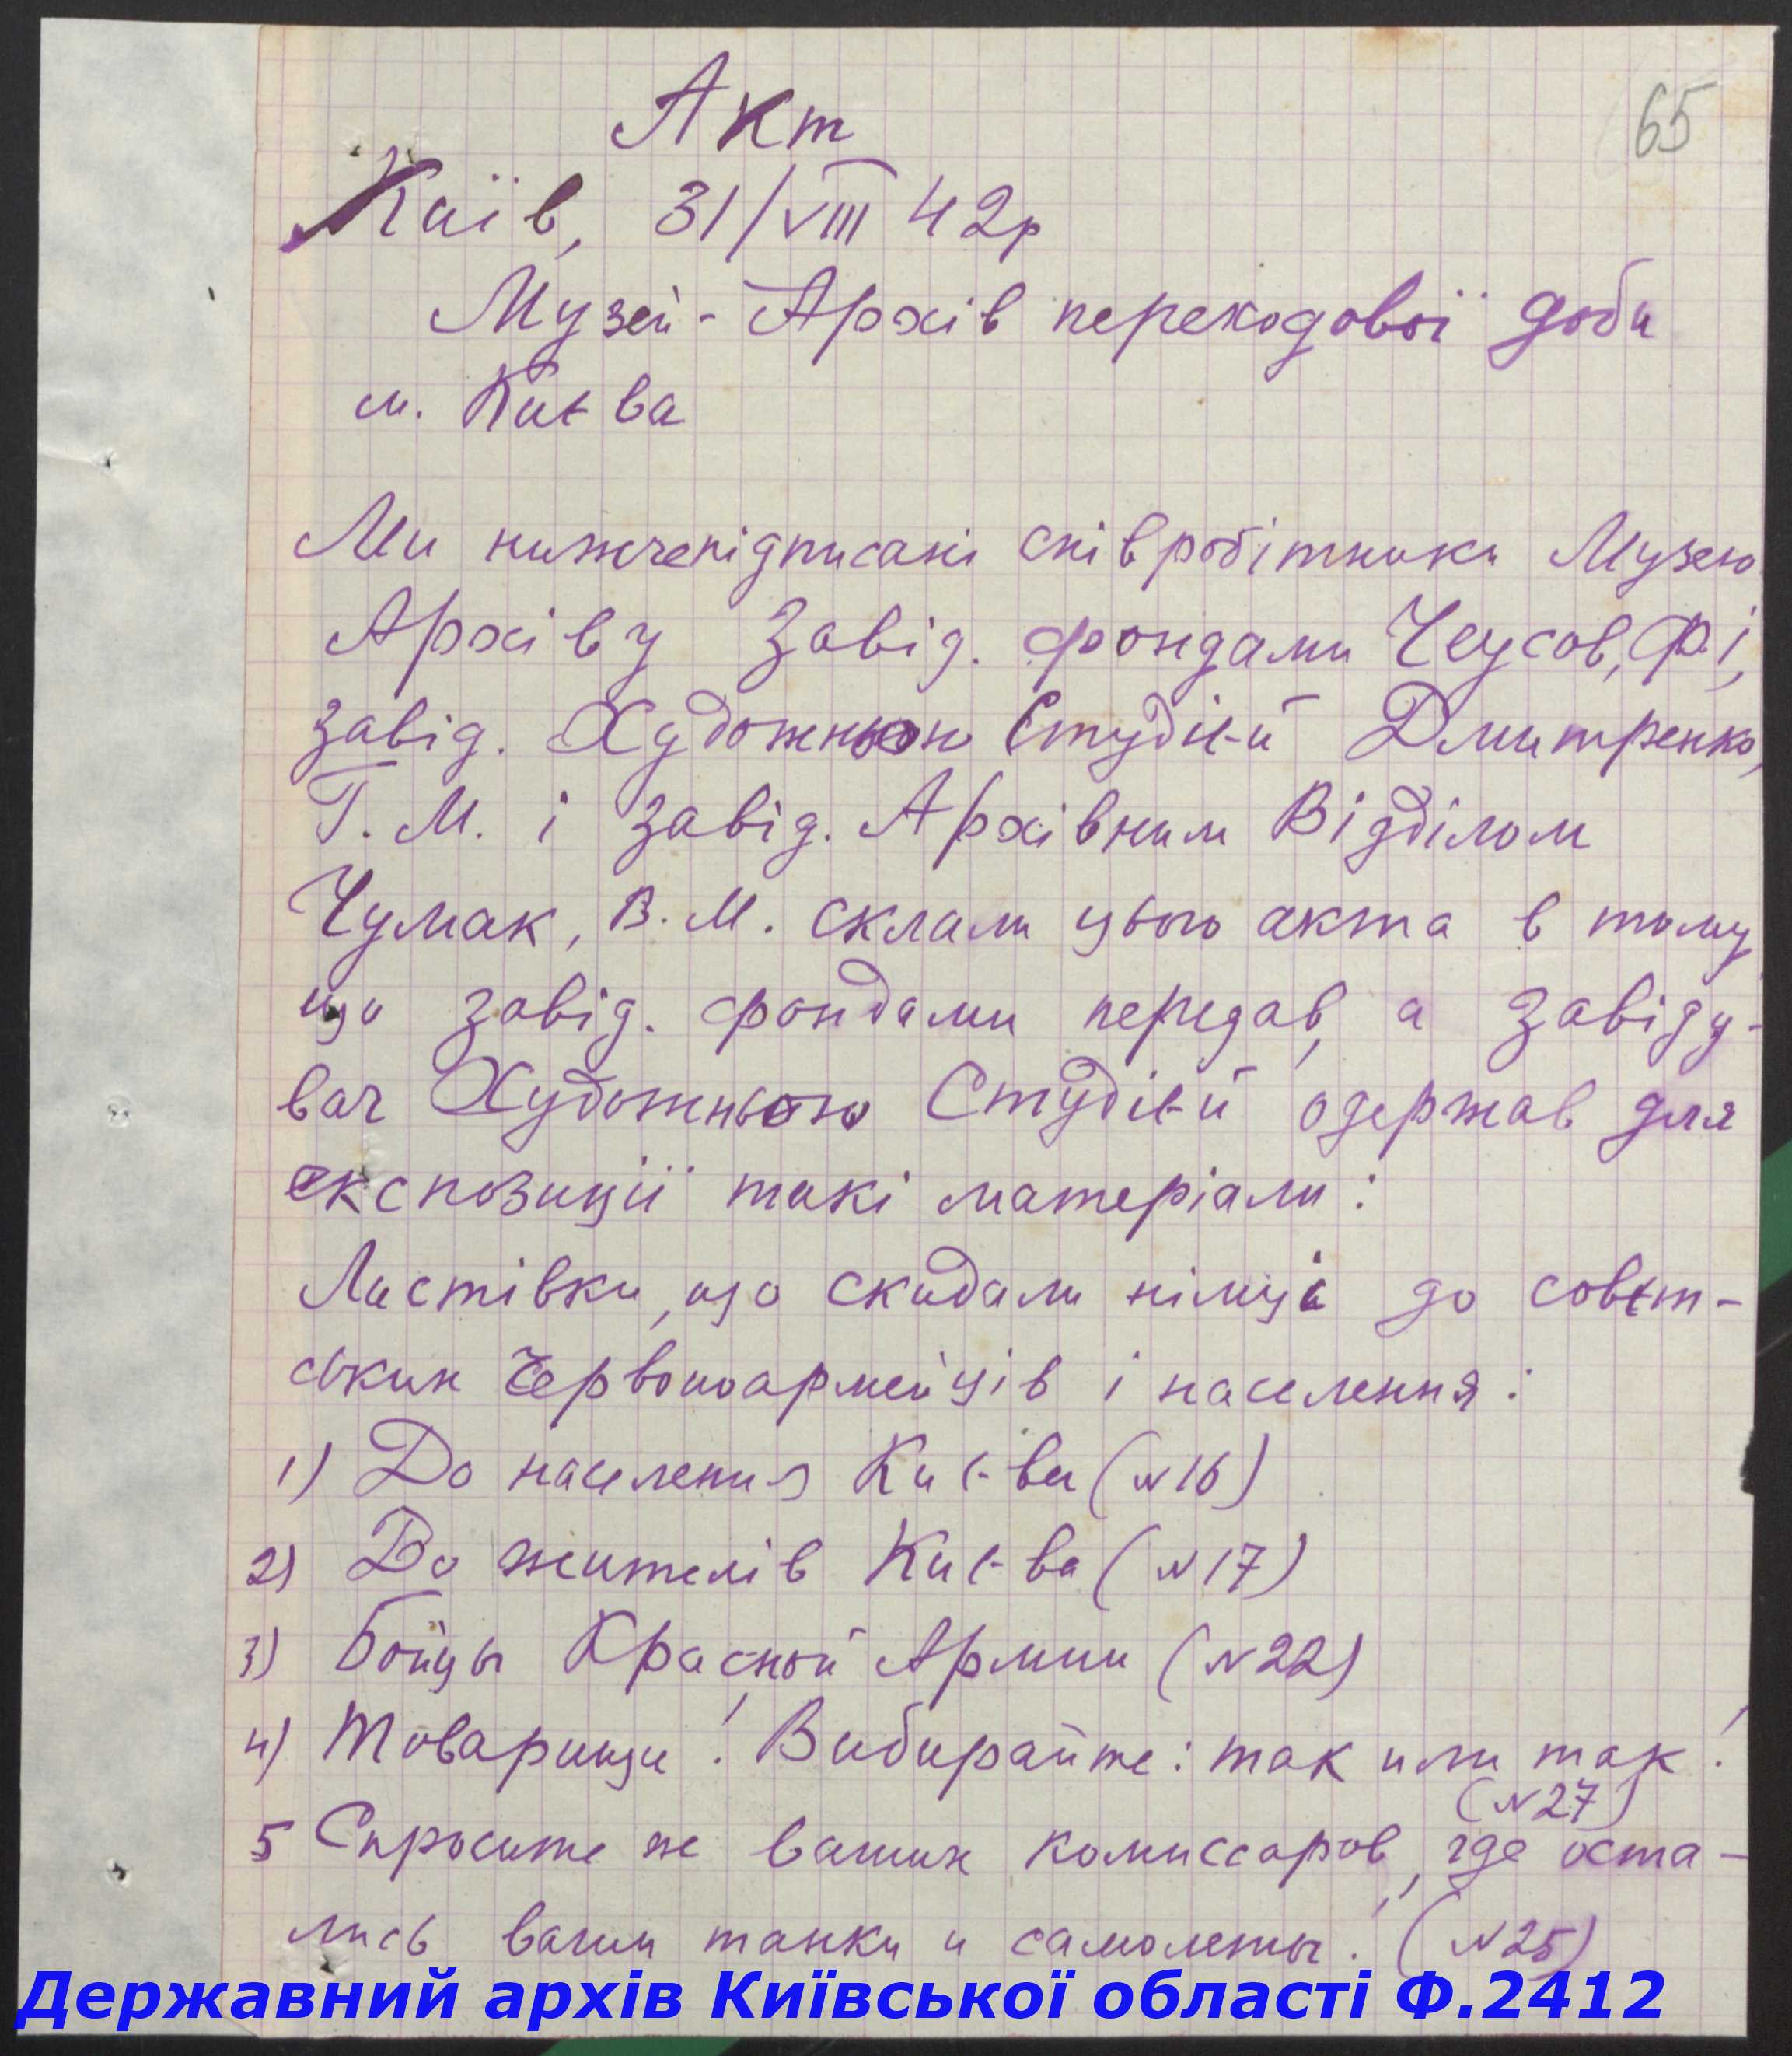 Акт
65
Київ, 31/VIII 42р
Музей-Архів переходової доби
м. Києва
Ми нижчепідписані співробітники Музею
Архіву Завід. фондами Чеусов, Ф.І,
завід. Художньою Студією Дмитренко,
Г. М. і завід. Архівним Відділом
Чумак, В. М. склали цього акта в тому
що завід. фондами передав, а завіду-
вач Художньою Студією одержав для
експозиції такі матеріали:
Листівки, що скидали німці до совєт-
ських червоноармейців і населення:
1) До населення Києва (№16)
2) До жителів Києва (№17)
3) Бойцы Красной Армии (№22)
4) Товарищи! Вибирайте: так или так!
(№27)
5 Спросите же ваших комиссаров, где оста-
лись ваши танки и самолеты! (№25)
Державний архів Київської області Ф.2412